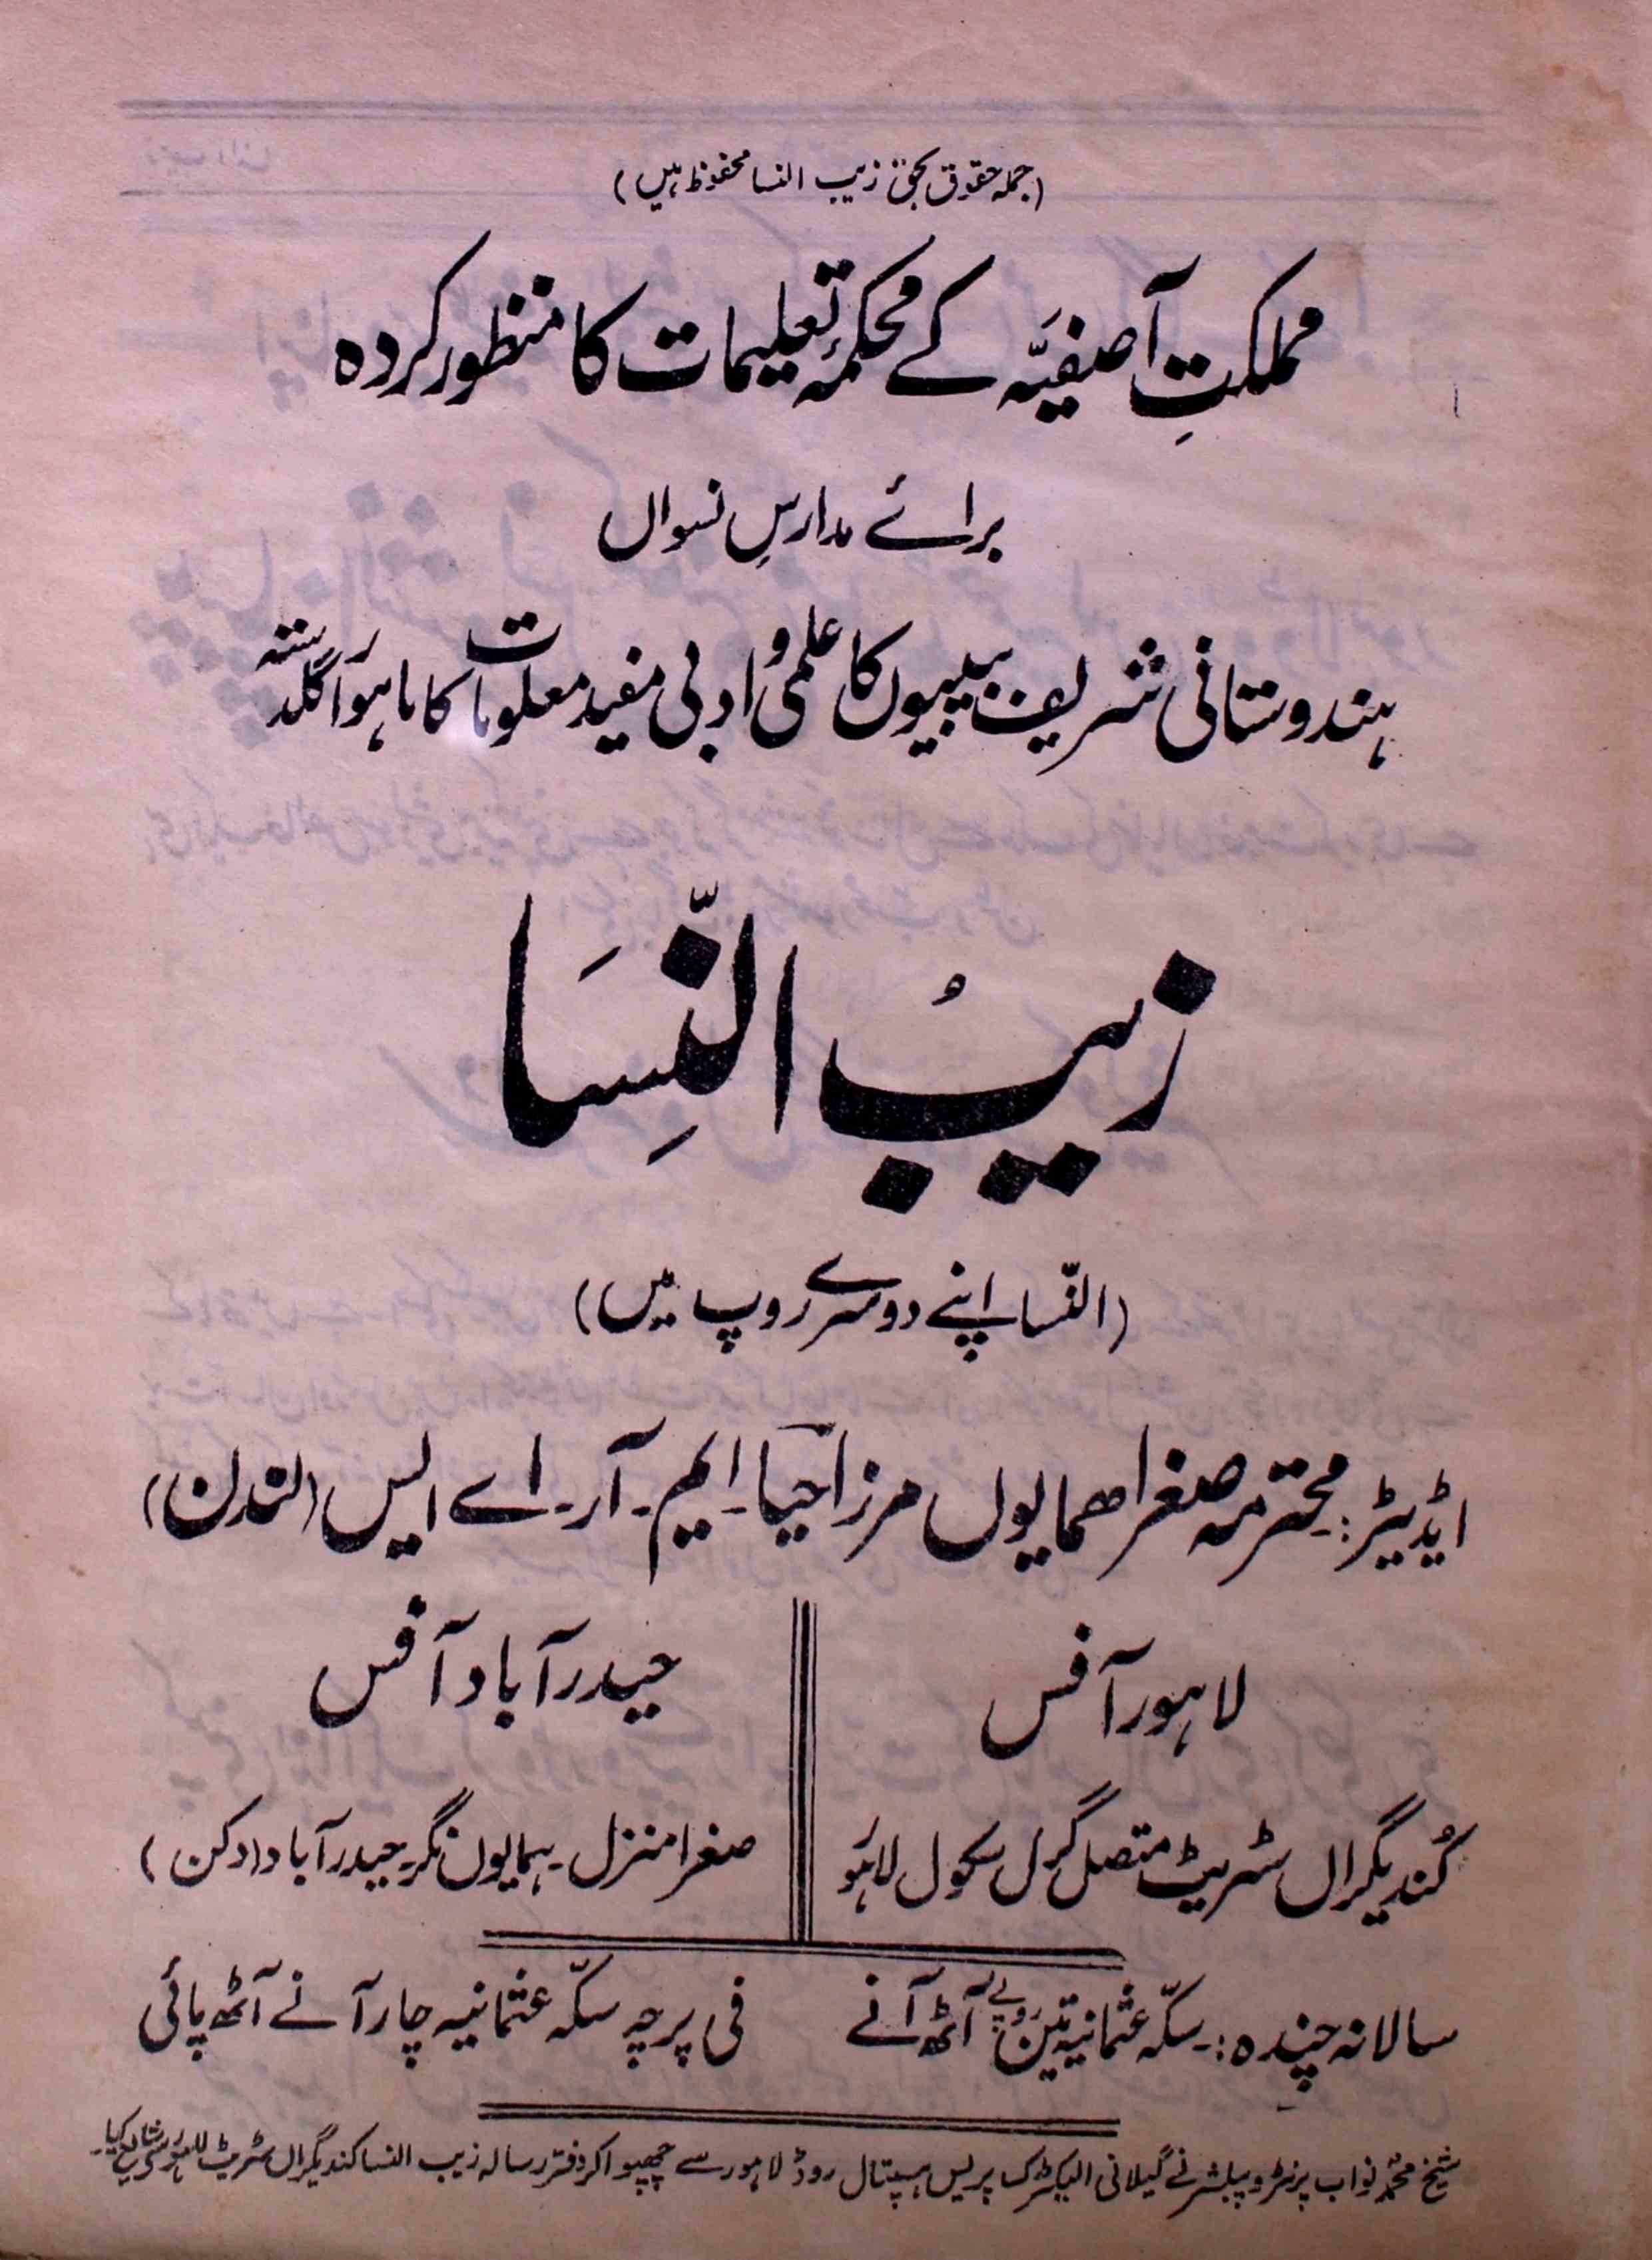 (جملہ حقوق بحق زیب النسا محفوظ ہیں)
مملکتِ آصفیَّہ کے محکمۂ تعلیمات کا منظور کردہ
برائے مدارسِ نسواں
ہندوستانی شریف بیبیوں کا علمی و ادبی مفید معلومات کا ماہوار گلدستہ
زیبُ النِّسَا
(النّسا اپنے دوسرے روپ میں)
اڈیٹر: محترمہ صغرا ھمایوں مرزا حیا۔ ایم۔ آر۔ اے ایس (لندن)
لاہور آفس
کُندیگراں سٹریٹ متصل گرل سکول لاہور
حیدر آباد آفس
صغرا منزل۔ ہمایوں نگر۔ حیدر آباد (دکن)
سالانہ چندہ:۔ سکّہ عثمانیہ تین روپے آٹھ آنے
فی پرچہ سکّہ عثمانیہ چار آنے آٹھ پائی
شیخ محمد نواب پرنٹر و پبلشر نے گیلانی الیکٹرک پریس ہسپتال روڈ لاہور سے چھپوا کر دفتر رسالہ زیب النسا کندیگراں سٹریٹ لاہور سے شائع کیا۔